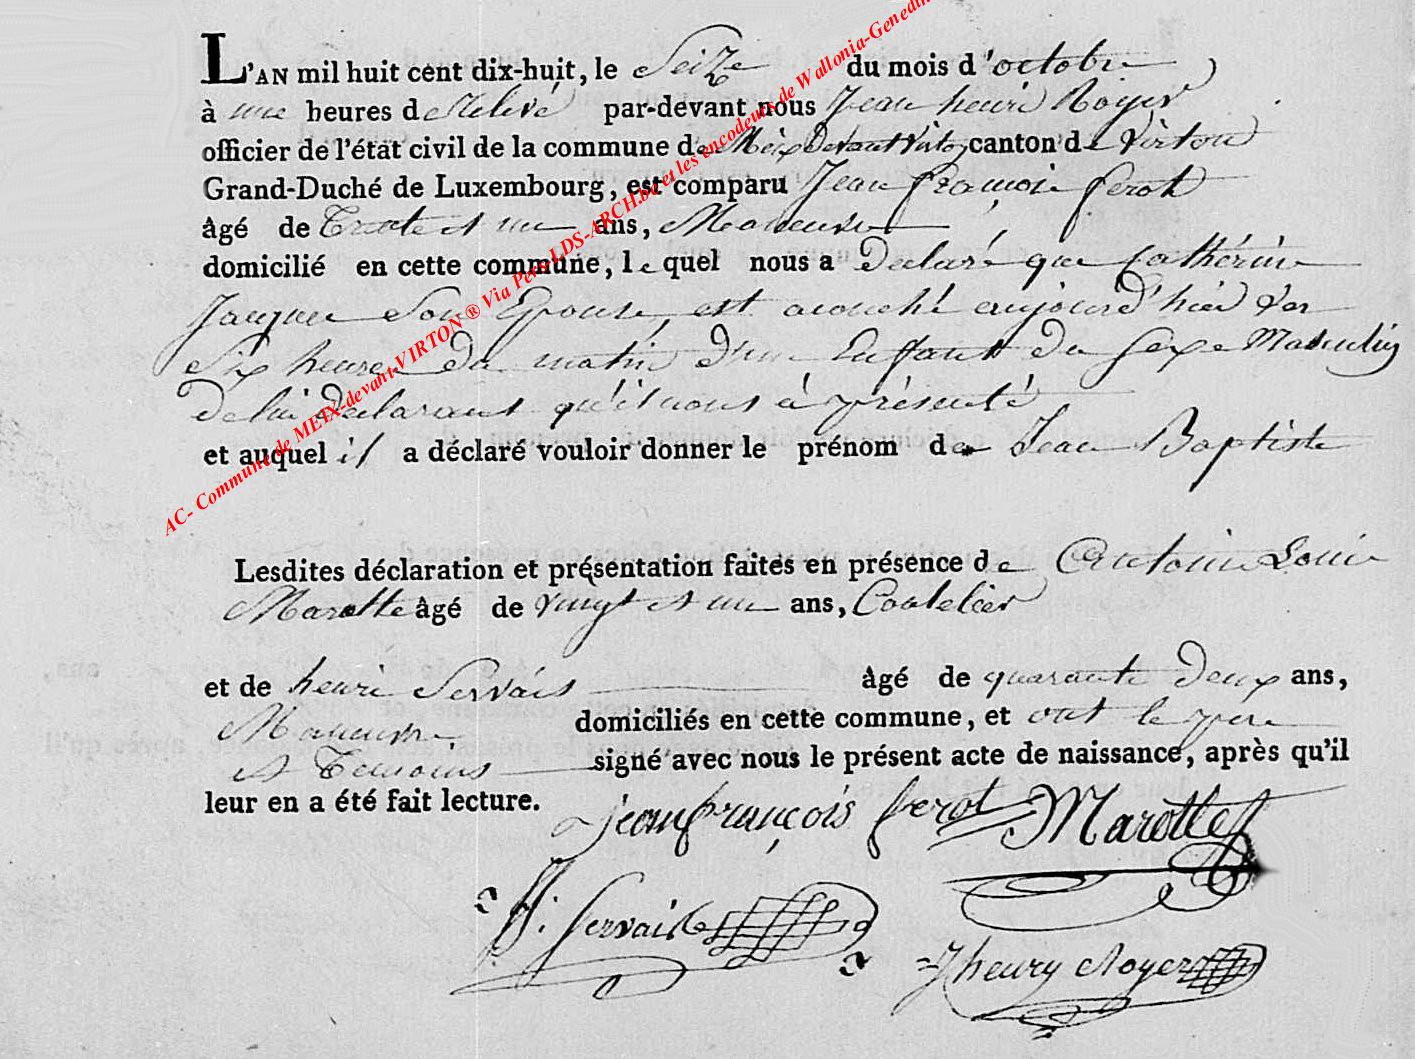 L'AN mil huit cent dix-huit, le Seize du mois d'octobre
à une heures de Relevé par-devant nous Jean henri Royer
officier de l'état civil de la commune de Meix Devant Virton canton de Virton
Grand-Duché de Luxembourg, est comparu Jean françois ferot
âgé de Trente et un ans, Maneuvre
domicilié en cette commune, lequel nous a Declaré que Cathérine
Jacques Son Epouse, est acouché aujourd'hier Ver
Six heures du matin d'un Enfant du Sexe Masculin
De lui declarant qu'il nous à présenté
et auquel il a déclaré vouloir donner le prénom de Jean Baptiste
Lesdites déclaration et présentation faites en présence de Antoine Louis
Marotte âgé de vingt et un ans, Coutelier
et de henri Servais âgé de quarante Deux ans,
Maneuvre domiciliés en cette commune, et ont le père
et Temoins signé avec nous le présent acte de naissance, après qu'il
leur en a été fait lecture.
jean françois ferot Marotte
H. Servais
J henry Royer
AC- Commune de MEIX-devant-VIRTON ® Via Pers LDS-ARCH.be et les encodeurs de Wallonia-Genedin